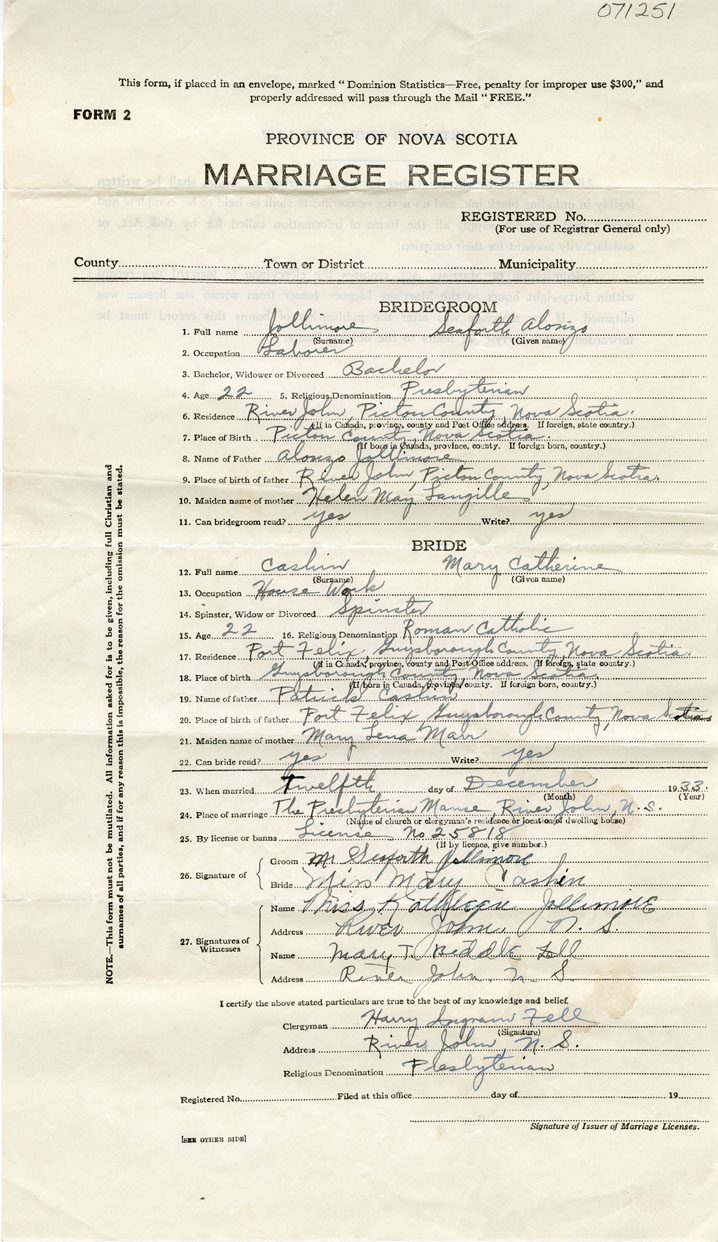 071251
This form, if placed in an envelope, marked "Dominion Statistics—Free, penalty for improper use $300," and
properly addressed will pass through the Mail "FREE."
FORM 2
PROVINCE OF NOVA SCOTIA
MARRIAGE REGISTER
REGISTERED No.
(For use of Registrar General only)
County Town or District Municipality
BRIDEGROOM
1. Full name Jollimore Seaforth Alonzo
(Surname) (Given name)
2. Occupation Laborer
3. Bachelor, Widower or Divorced Bachelor
4. Age 22 5. Religious Denomination Presbyterian
6. Residence River John, Pictou County, Nova Scotia.
(If in Canada, province, county and Post Office address. If foreign, state country.)
7. Place of Birth Pictou County, Nova Scotia.
(If born in Canada, province, county. If foreign born, country.)
8. Name of Father Alonzo Jollimore
9. Place of birth of father River John, Pictou County, Nova Scotia.
10. Maiden name of mother Helen May Langille
11. Can bridegroom read? yes Write? yes
BRIDE
12. Full name Cashin Mary Catherine
(Surname) (Given name)
13. Occupation House Work
14. Spinster, Widow or Divorced Spinster
15. Age 22 16. Religious Denomination Roman Catholic
17. Residence Port Felix, Guysborough County, Nova Scotia.
(If in Canada, province, county and Post Office address. If foreign, state country.)
18. Place of birth Guysborough County, Nova Scotia.
(If born in Canada, province, county. If foreign born, country.)
19. Name of father Patrick Cashin
20. Place of birth of father Port Felix Guysborough County, Nova Scotia
21. Maiden name of mother Mary Lena
22. Can bride read? yes Write? yes
23. When married Twelfth day of December 1933.
(Month) (Year)
24. Place of marriage The Presbyterian Manse, River John, N.S.
(Name of church or clergyman's residence or location of dwelling house)
25. By license or banns License No 25818
(If by licence, give number.)
26. Signature of
Groom Mr Seaforth Jollimore
Bride Miss Mary Cashin
27. Signatures of Witnesses
Name Miss Kathleen Jollimore
Address River John, N. S.
Name Mary T. Fell
Address River John N S
I certify the above stated particulars are true to the best of my knowledge and belief
Clergyman Harry Ingram Fell
(Signature)
Address River John, N. S.
Religious Denomination Presbyterian
Registered No. Filed at this office day of 19
Signature of Issuer of Marriage Licenses.
[SEE OTHER SIDE]
NOTE.—This form must not be mutilated. All information asked for is to be given, including full Christian and
surnames of all parties, and if for any reason this is impossible, the reason for the omission must be stated.